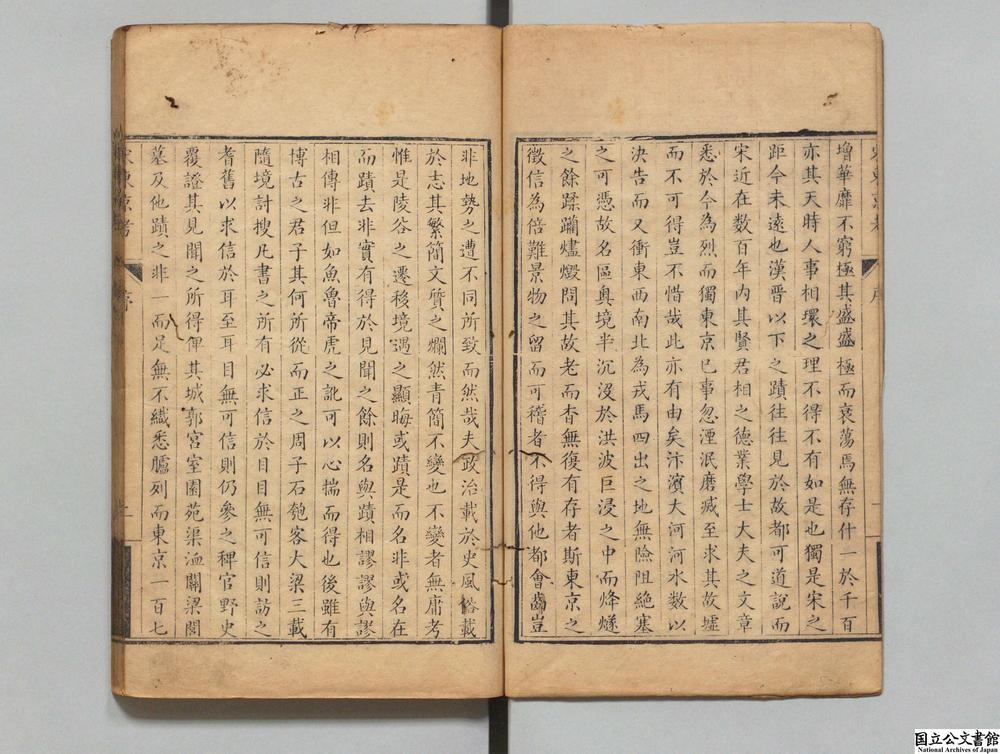 增華靡不窮極其盛盛極而衰蕩焉無存什一於千百
亦其天時人事相環之理不得不有如是也獨是宋之
距今未遠也漢晉以下之蹟往往見於故都可道說而
宋近在数百年内其賢君相之德業學士大夫之文章
悉於今為烈而獨東京已事忽湮泯磨烕至求其故墟
而不可得豈不惜哉此亦有由矣汴濱大河河水数以
決告而又衝東西南北為戎馬四出之地無險阻絶塞
之可憑故名區奥境半沉沒於洪波巨浸之中而烽燧
之餘蹂躪爐燬問其故老而杳無復有存者斯東京之
徵信為倍難景物之留而可稽者不得與他都會齒豈
非地勢之遭不同所致而然哉夫政治載於史風俗載
於志其繁簡文質之爛然青簡不變也不變者無庸考
惟是陵谷之遷移境遇之顯晦或蹟是而名非或名在
而蹟去非實有得於見聞之餘則名與蹟相謬謬與謬
相傳非但如魚魯帝虎之訛可以心揣而得也後雖有
博古之君子其何所從而正之周子石匏客大梁三載
隨境討搜凡書之所有必求信於目目無可信則訪之
耆舊以求信於耳至耳目無可信則仍參之稗官野史
覆證其見聞之所得俾其城郭宮室園苑渠洫關梁閣
墓及他蹟之非一而足無不纖悉臚列而東京一百七
宋東京考
序
国立公文書館
National Archives of Japan